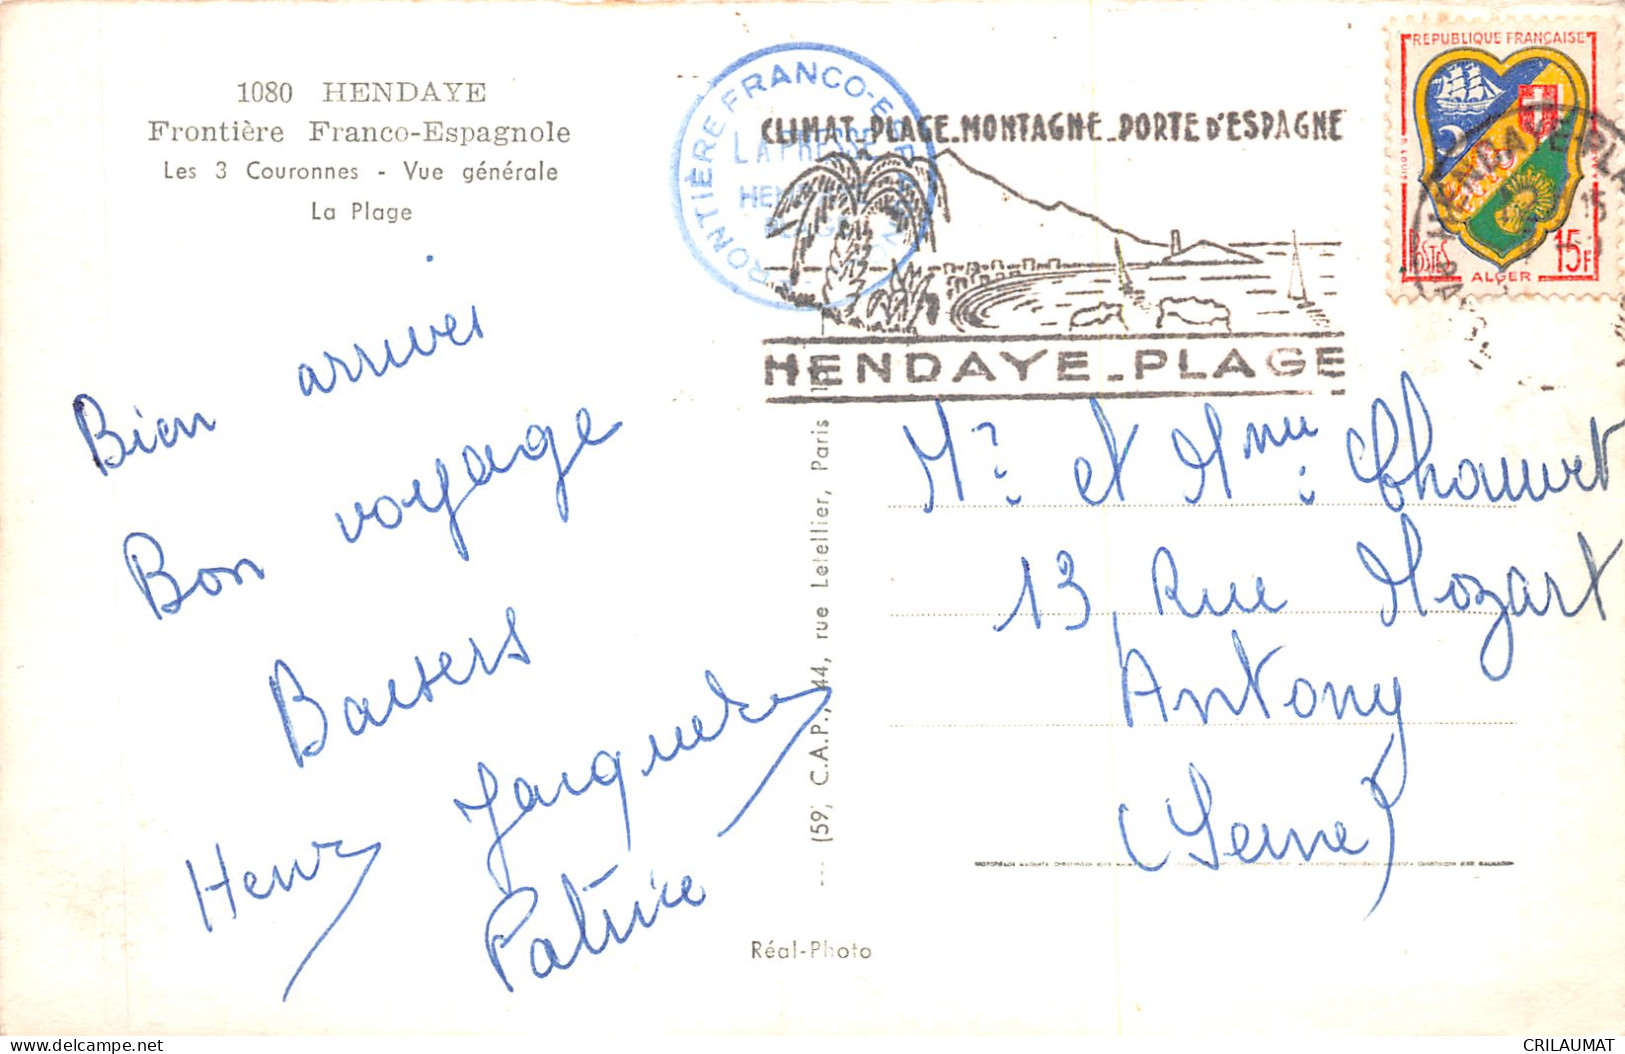 1080 HENDAYE
Frontière Franco-Espagnole
Les 3 Couronnes - Vue générale
La Plage
Bien arrivés
Bon voyage
Baisers
Henry Jacqueline
Patrice
FRONTIÈRE FRANCO-ESPAGNOL
LA PRESSE
HENDAYE
PLAGE
CLIMAT_PLAGE_MONTAGNE_PORTE D'ESPAGNE
HENDAYE_PLAGE
REPUBLIQUE FRANÇAISE
POSTES
ALGER
15F
HENDAYE PLAGE
15
(59) C.A.P., 44, rue Letellier, Paris
Mr et Mme Chauvet
13, Rue Mozart
Antony
(Seine)
Réal-Photo
CRILAUMAT